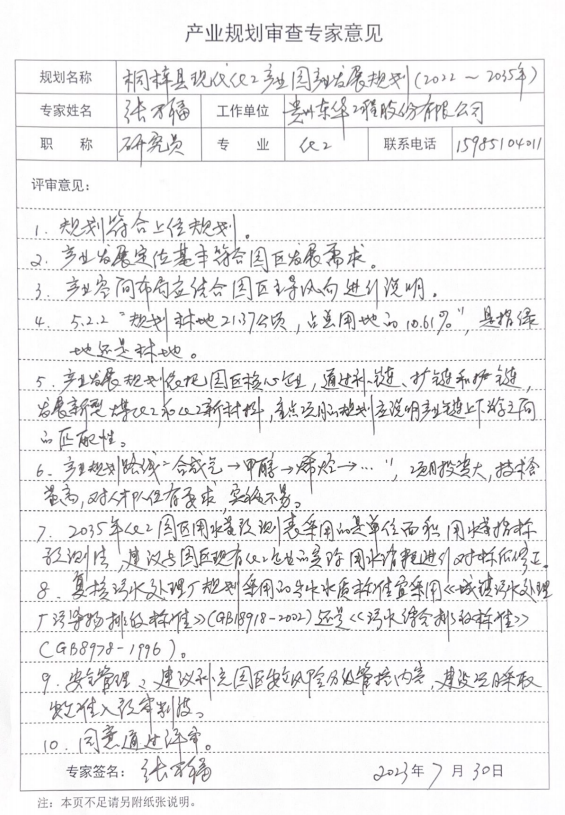 产业规划审查专家意见
规划名称 桐梓县现代化工产业园产业发展规划(2022~2035年)
专家姓名 张万福 工作单位 贵州东华工程股份有限公司
职 称 研究员 专 业 化工 联系电话 15985104011
评审意见:
1. 规划符合上位规划。
2. 产业发展定位基本符合园区发展需求。
3. 产业空间布局应结合园区主导风向进行说明。
4. 5.2.2 "规划林地21.37公顷,占总用地的10.61%",是指绿
地还是林地。
5. 产业发展规划依托园区核心企业,通过补链、扩链和延链,
发展新型煤化工和化工新材料,重点项目的规划应说明产业链上下游之间
的匹配性。
6. 产业规划路线"合成气→甲醇→烯烃→…",项目投资大,技术含
量高,对人才队伍有要求,实施不易。
7. 2035年化工园区用水量预测表采用的是单位面积用水量指标
预测法,建议与园区现有化工企业的实际用水情况进行对标后修正。
8. 复核污水处理厂规划采用的出水水质标准宜采用《城镇污水处理
厂污染物排放标准》(GB18918-2002)还是《污水综合排放标准》
(GB8978-1996)。
9. 安全管理:建议补充园区安全风险分级管控内容,建设项目采取
准入预审制度。
10. 同意通过评审。
专家签名: 张万福 2023年7月30日
注:本页不足请另附纸张说明。